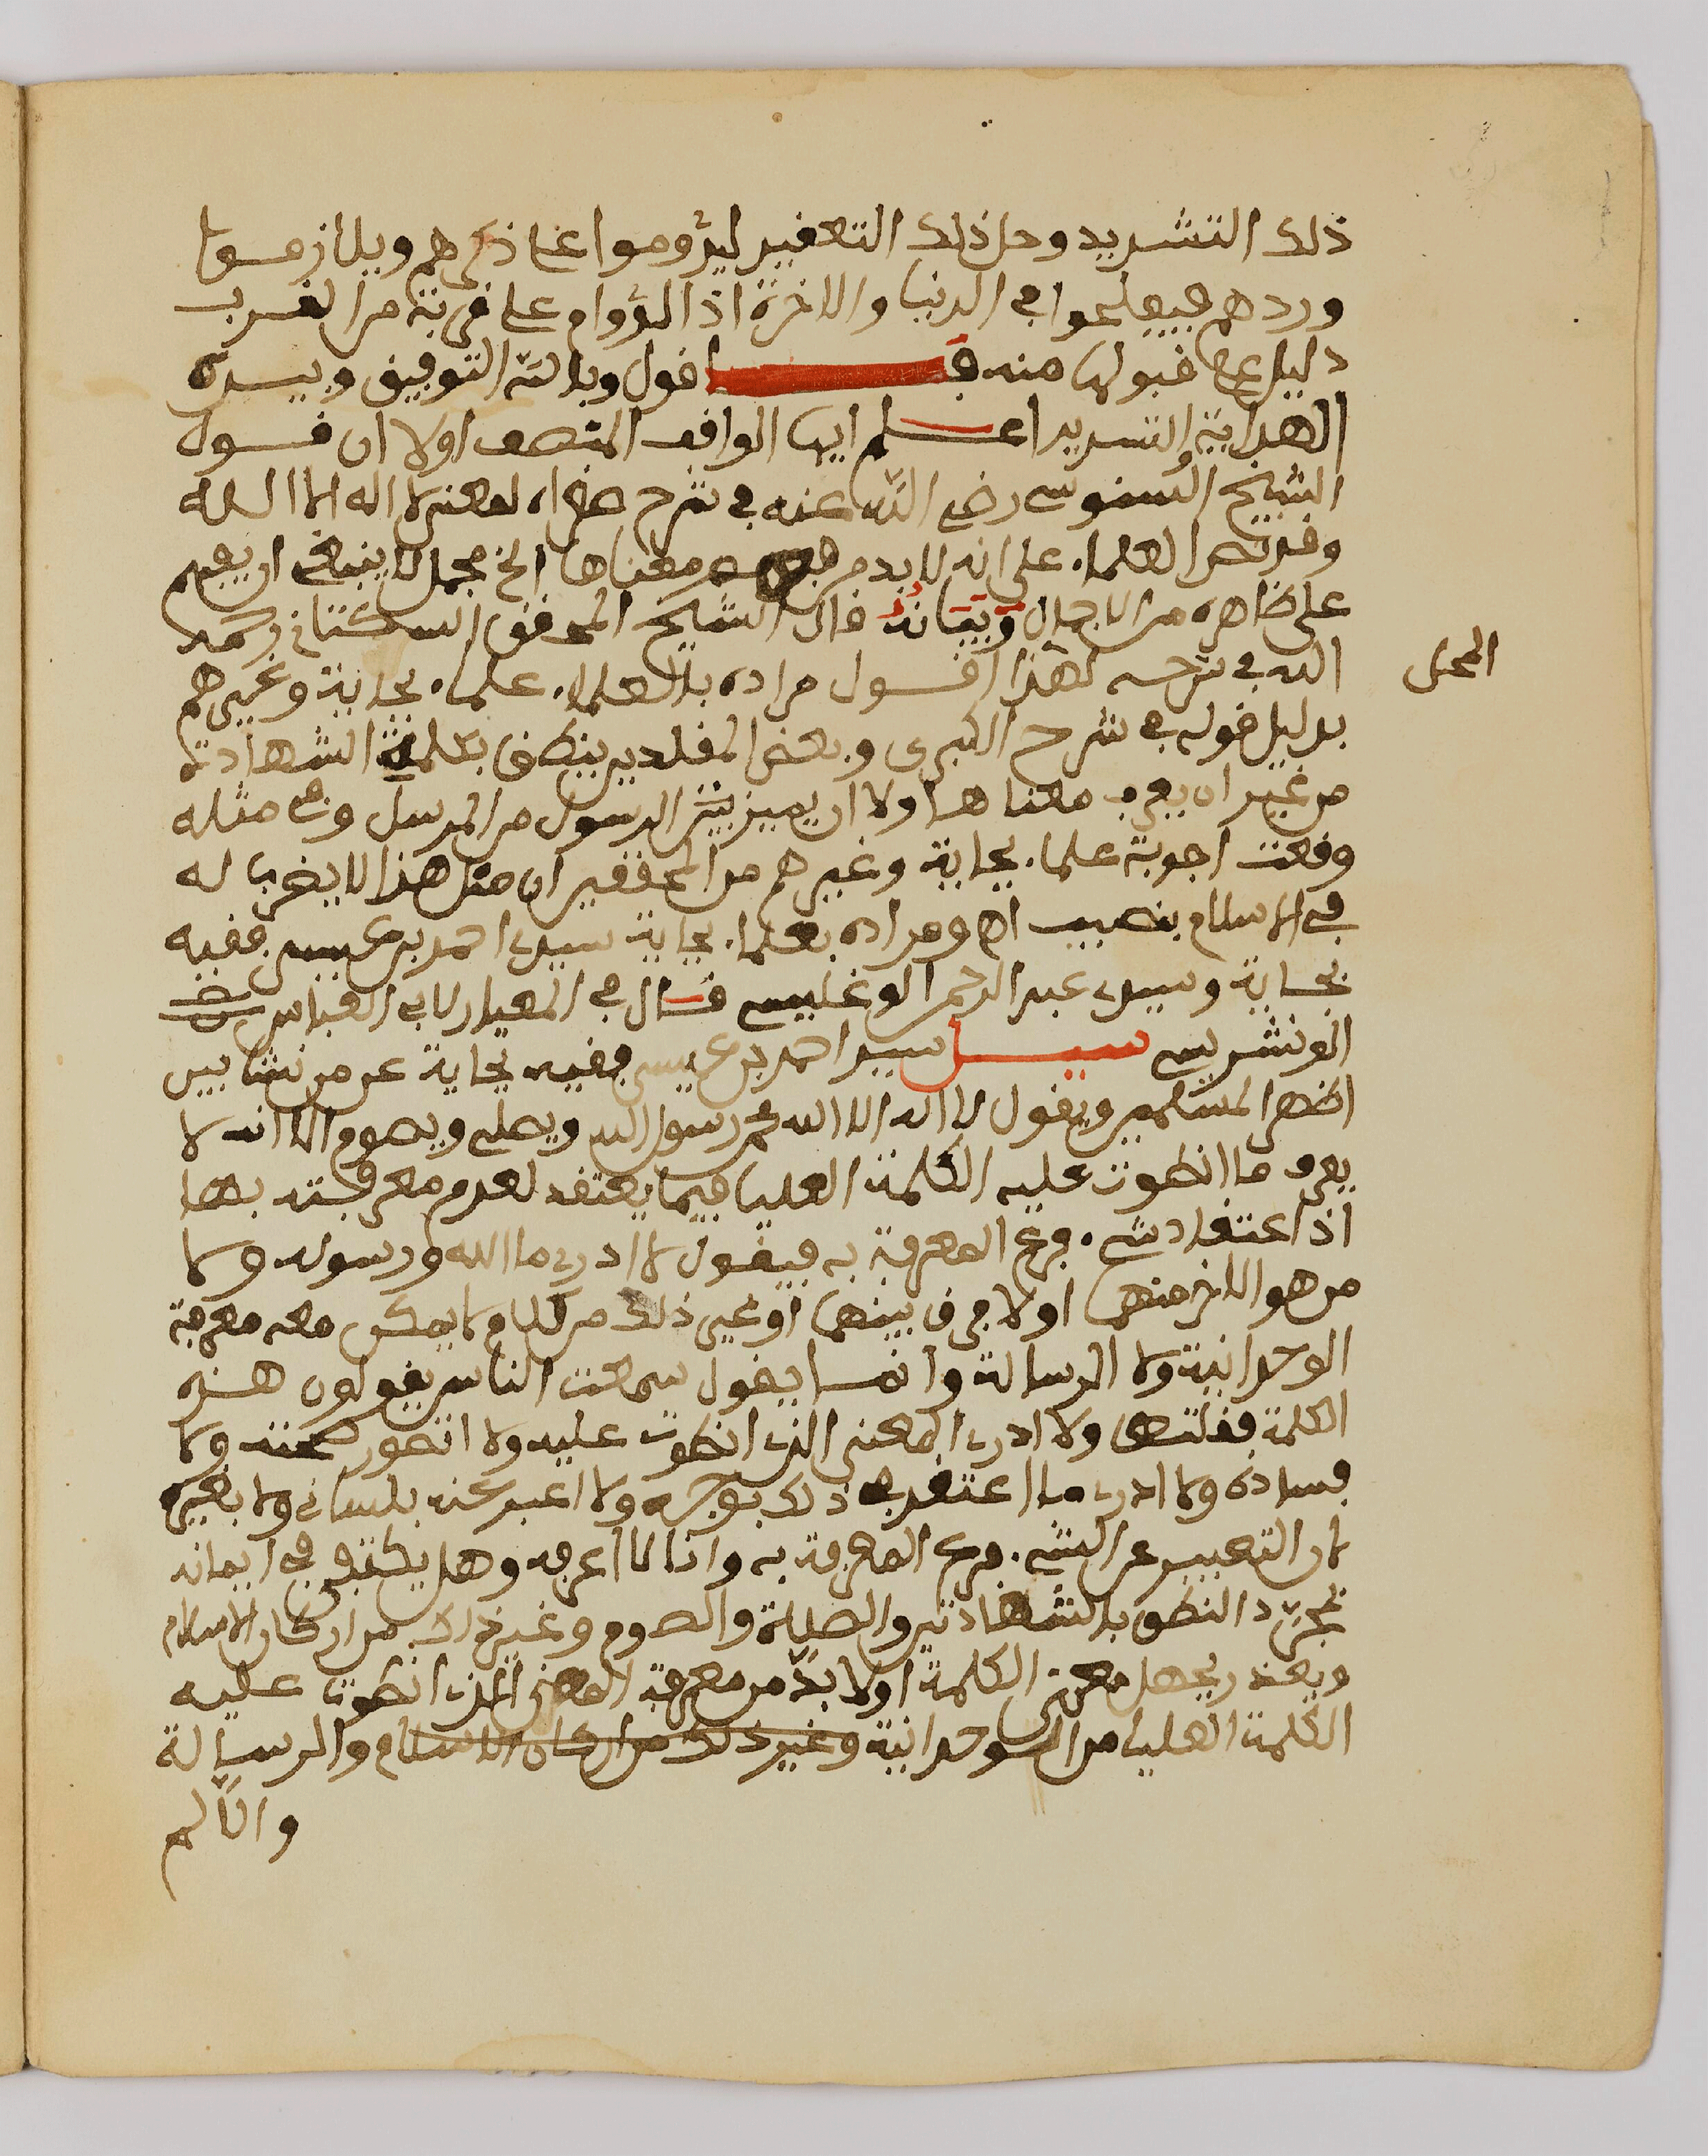 ذلك التشديد وحل ذلك التعقيد ليدوموا على ذكرهم ويلازموا
وردهم فيفلحوا في الدنيا والاخرة اذ الدوام على قربة من القرب
دليل على قبولها منه فـ اقول وبالله التوفيق وبيده
الهداية والتسديد اعلم ايها الواقف المنصف اولا ان قول
الشيخ السنوسي رضي الله عنه في شرح صغراه لمعنى لا اله الا الله
وقد نص العلماء على انه لا بد من فهم معناها الخ مجمل لا ينبغي ان يفهم
على ظاهره من الاجمال وبيانه قال الشيخ المحقق السكتاني رحمه
الله في شرحه لهذا القول مراده بالعلماء علماء بجاية وغيرهم
المحل
بدليل قوله في شرح الكبرى وبعض المقلدين ينطق بكلمة الشهادة
من غير ان يعرف معناها ولا ان يميز بين الرسول من المرسل وفي مثله
وقعت اجوبة علماء بجاية وغيرهم من المحققين ان مثل هذا لا يضرب له
في الاسلام بنصيب اه ومراده بعلماء بجاية سيدي احمد بن عيسى فقيه
بجاية وسيدي عبد الرحمن الوغليسي قال في المعيار لابي العباس
الونشريسي سيل سيد احمد بن عيسى فقيه بجاية عن من نشا بين
اظهر المسلمين ويقول لا اله الا الله محمد رسول الله ويصلي ويصوم الا انه لا
يعرف ما انطوت عليه الكلمة العليا فيما يعتقد لعدم معرفته بها
اذ اعتقاد شيء فرع المعرفة به فيقول لا ادري ما الله ورسوله ولا
من هو الاخر منهما اولا فرق بينهما او غير ذلك من كلام لا يمكن معه معرفة
الوحدانية ولا الرسالة وانما يقول سمعت الناس يقولون هذه
الكلمة فقلتها ولا ادري المعنى الذي انطوت عليه ولا اتصور صحته ولا
فساده ولا ادري ما اعتقد في ذلك بوجه ولا اعبر عنه بلساني ولا بغيره
لان التعبير عن الشيء فرع المعرفة به وانا لا اعرفه وهل يكتفى في ايمانه
بمجرد النطق بالشهادتين والصلاة والصوم وغير ذلك من اركان الاسلام
ويعذر بجهل معنى الكلمة اولا بد من معرفة المعنى الذي انطوت عليه
الكلمة العليا من الوحدانية وغير ذلك من اركان الاسلام والرسالة
والا لم